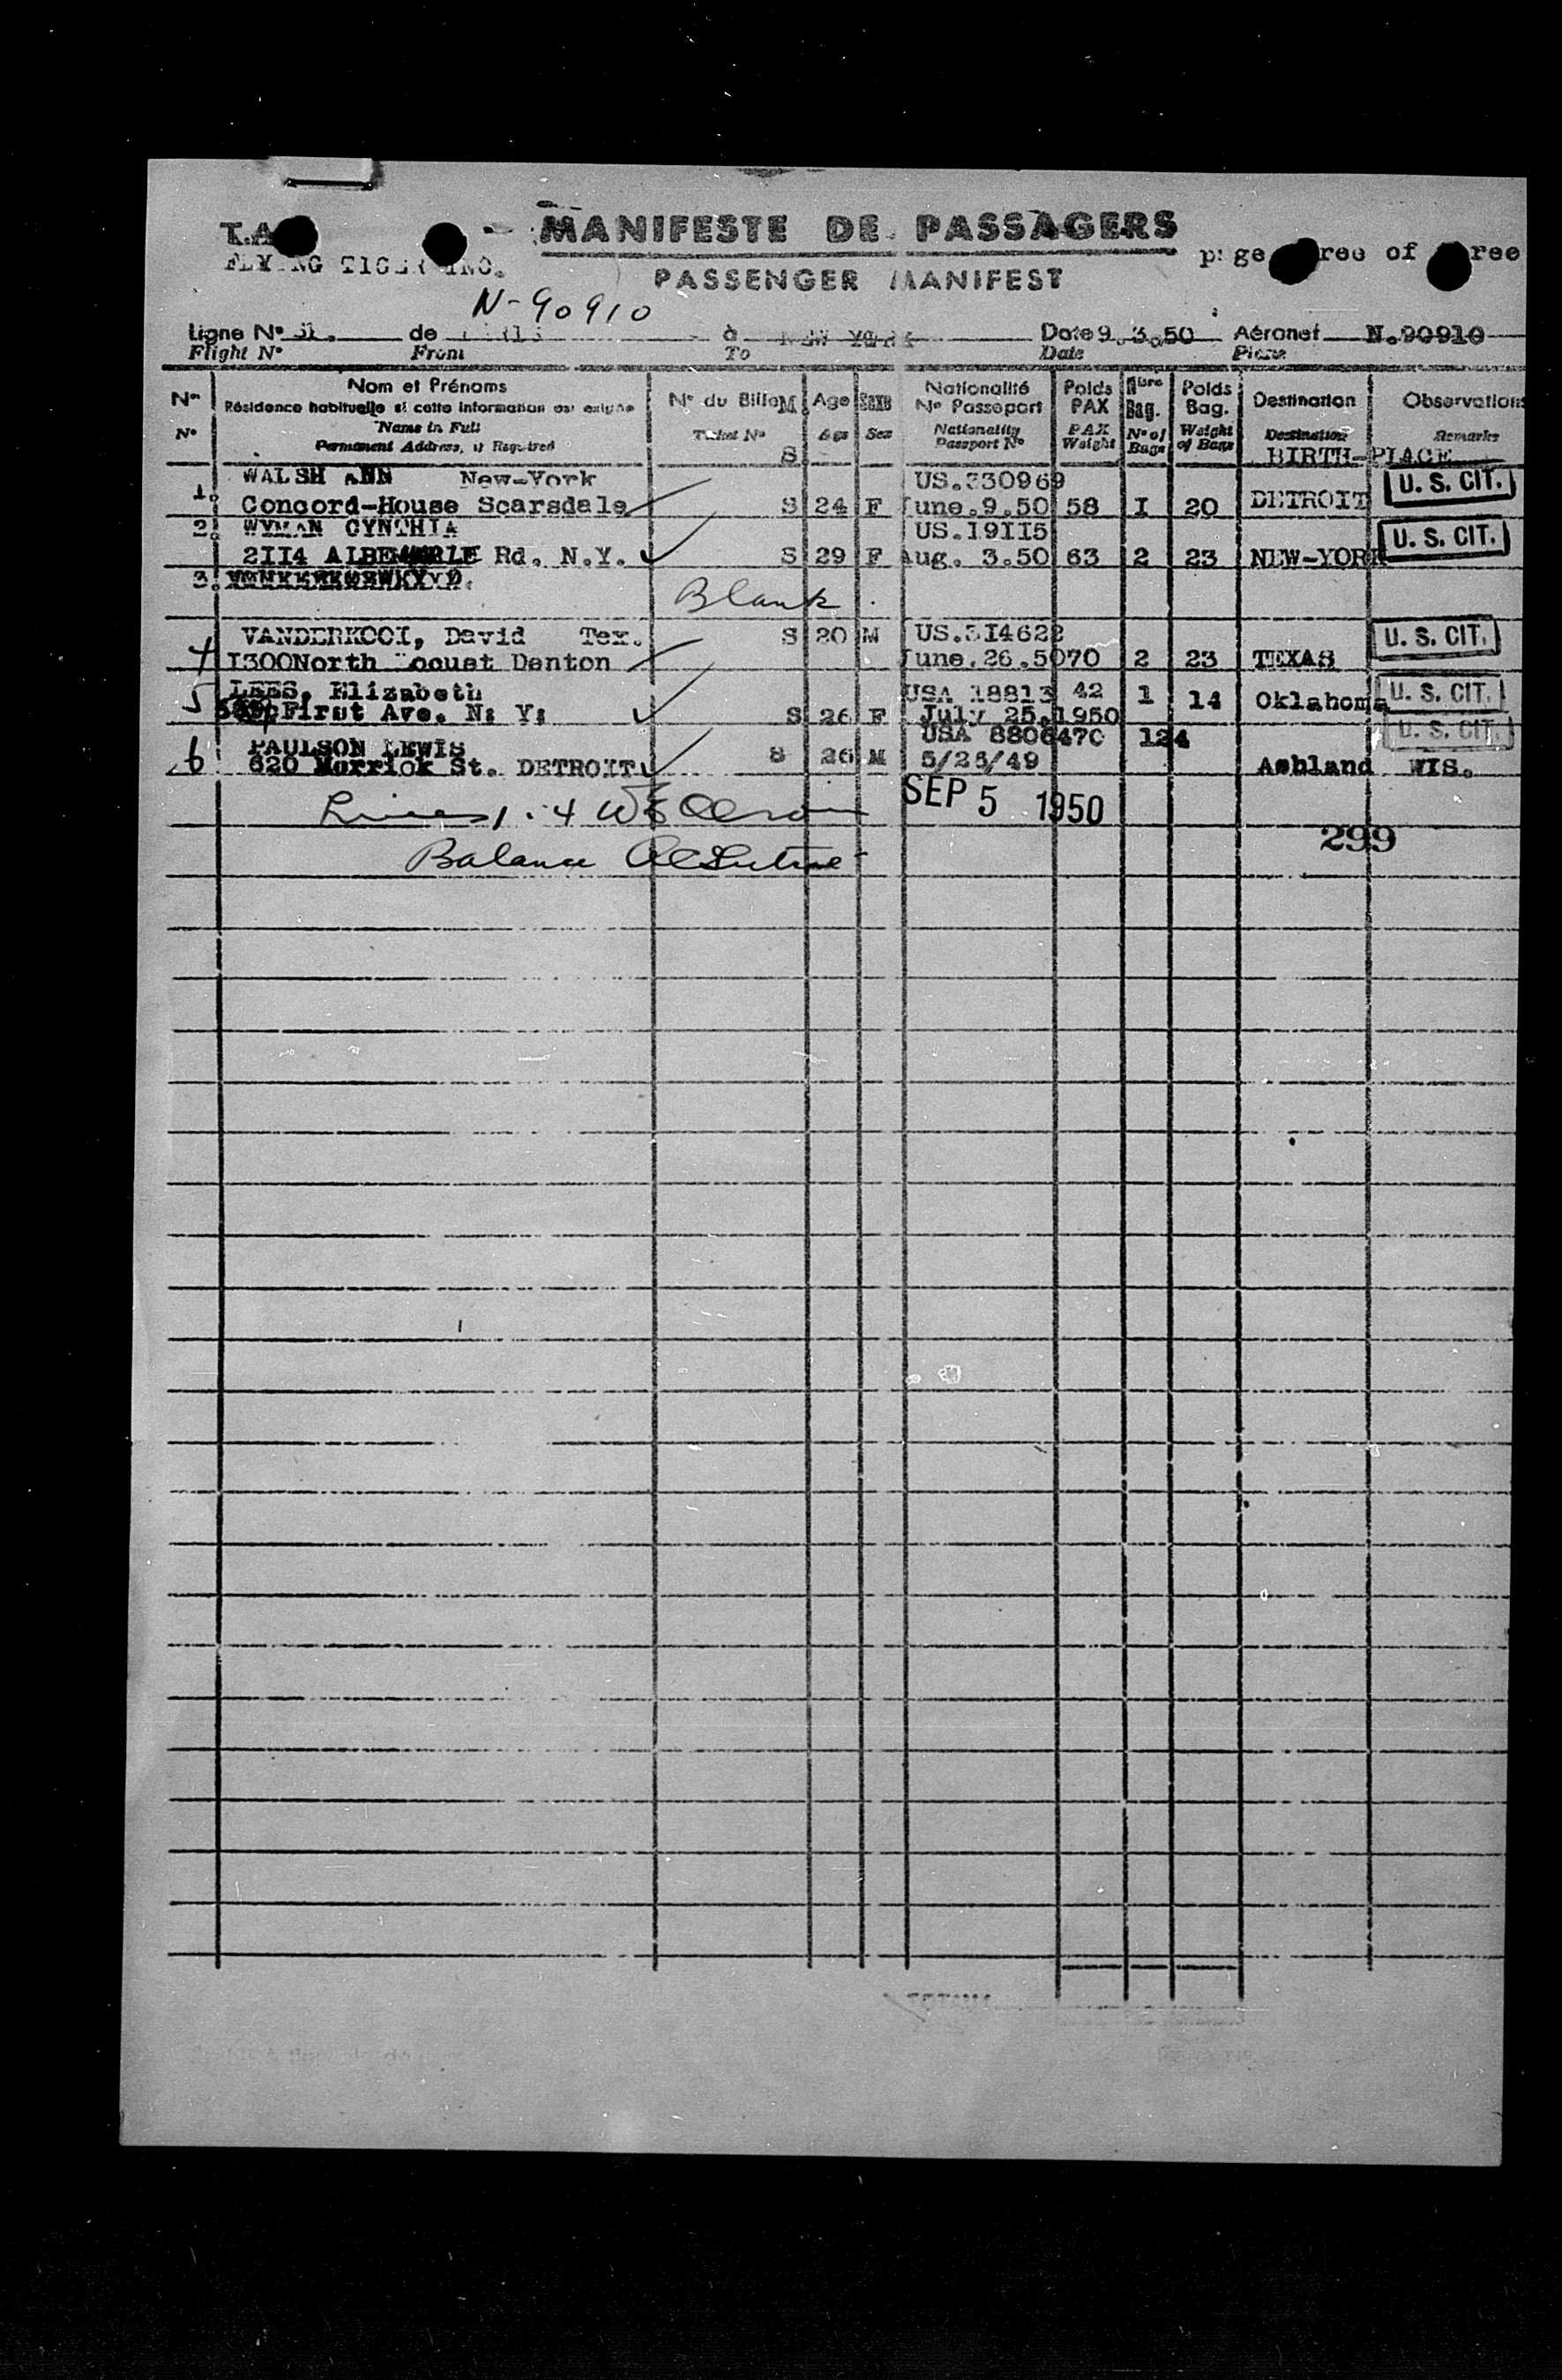 T.A
MANIFESTE DE PASSAGERS
FLYING TIGER INC.
page ree of ree
PASSENGER MANIFEST
N-90910
Ligne N° de PARIS à NEW YORK Date 9.3.50 Aéronef N.90910
Flight N° From To Date Plane
N° Nom et Prénoms N° du Billet M Age Sexe Nationalité Poids Nbre Poids Destination Observations
Résidence habituelle si cette information est exigée N° Passeport PAX Bag. Bag.
N° Name in Full Ticket N° Age Sex Nationality PAX N° of Weight Destination Remarks
Permanent Address, if Required S Passport N° Weight Bags of Bags BIRTH-PLACE
WALSH ANN New-York US.330969
1. Concord-House Scarsdale S 24 F June.9.50 58 I 20 DETROIT U. S. CIT.
2. WYMAN CYNTHIA US.19II5
2II4 ALBEMARLE Rd. N.Y. S 29 F Aug. 3.50 63 2 23 NEW-YORK U. S. CIT.
3. Blank
VANDERKOOI, David Tex. S 20 M US.3I4622 U. S. CIT.
4 I300North Locust Denton June.26.50 70 2 23 TEXAS
5 LEES, Elizabeth USA 18813 42 1 14 Oklahoma U. S. CIT.
First Ave. N: Y: S 26 F July 25.1950
PAULSON LEWIS USA 8806470 124 U. S. CIT.
6 620 Merrick St. DETROIT S 26 M 5/25/49 Ashland WIS.
SEP 5 1950
Lines 1-4
299
Balance